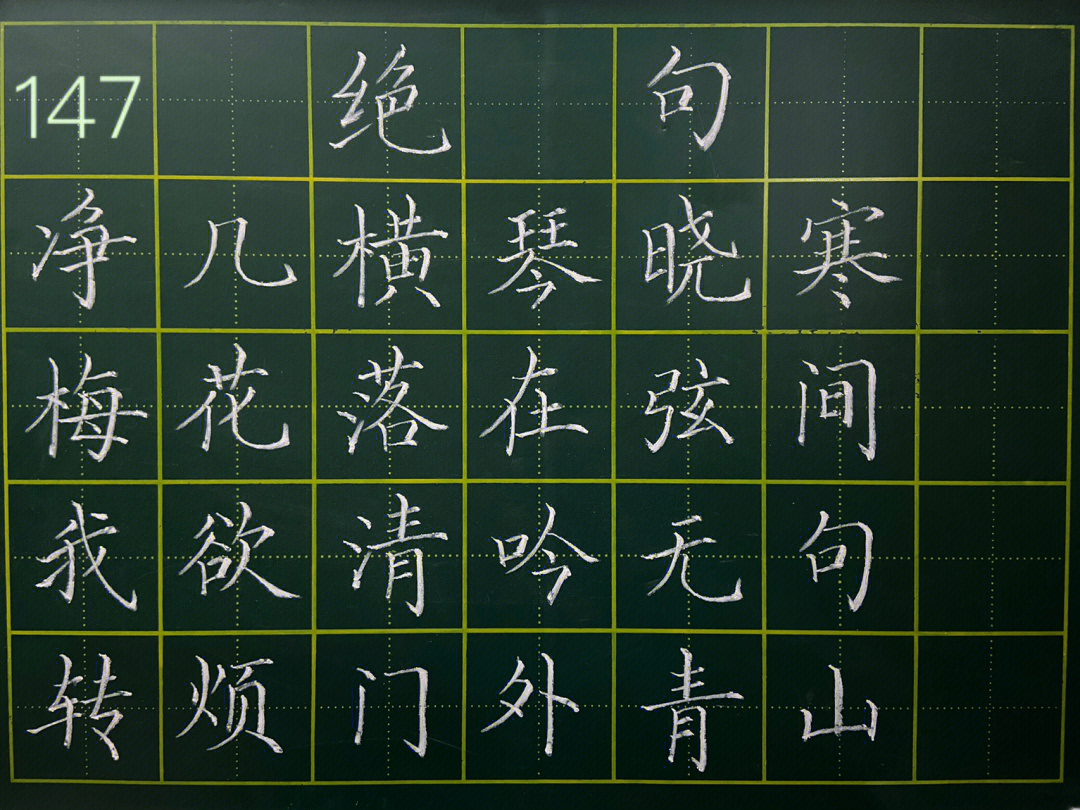 147 绝句
净几横琴晓寒
梅花落在弦间
我欲清吟无句
转烦门外青山